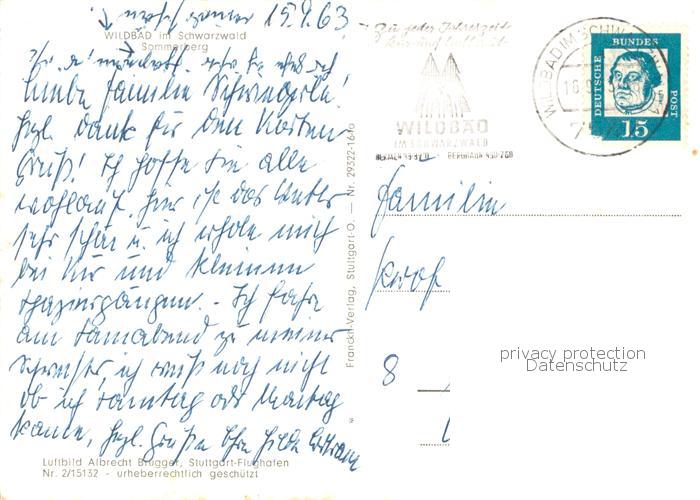 15.9.63
WILDBAD im Schwarzwald
Sommerberg
Liebe Familie
hzl. Dank für den Karten-
gruß! Ich hoffe Sie alle
wohlauf. Hier ist das Wetter
sehr schön u. ich erhole mich
bei Kur und kleinen
Spaziergängen. - Ich fahre
am Sonnabend zu meiner
Schwester, ich weiß noch nicht
ob ich Samstag oder Montag
komme, hzl. Grüße Ihre Hilde
Luftbild Albrecht Brugger, Stuttgart-Flughafen
Nr. 2/15132 - urheberrechtlich geschützt
Franckh-Verlag, Stuttgart-O. — Nr. 29322-1640
Zu jeder Jahreszeit
WILDBAD
IM SCHWARZWALD
WILDBAD IM SCHW
DEUTSCHE BUNDES POST
15
Familie
8
privacy protection
Datenschutz